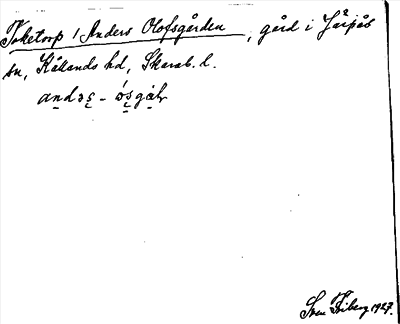 Toketorp, Anders Olofsgården, gård i Järpås
sn, Kållands hd, Skarab. l.
Sven Friberg 1927.